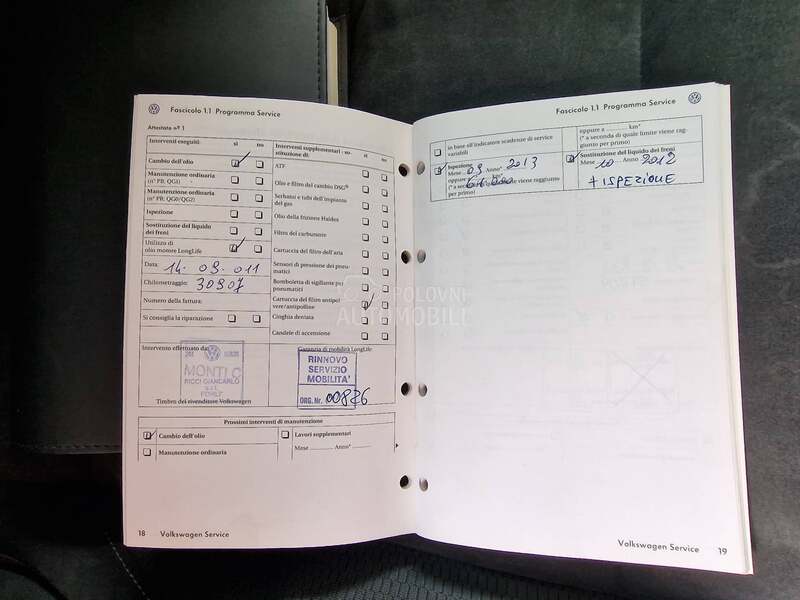 Fascicolo 1.1 Programma Service
Attestato nº 1
Interventi eseguiti: sì no
Cambio dell'olio
Manutenzione ordinaria
(nº PR: QG1)
Manutenzione ordinaria
(nº PR: QG0/QG2)
Ispezione
Sostituzione del liquido
dei freni
Utilizzo di
olio motore LongLife
Data: 14. 03. 011
Chilometraggio: 30907
Numero della fattura:
Si consiglia la riparazione
Interventi supplementari - so
stituzione di: sì no
ATF
Olio e filtro del cambio DSG®
Serbatoi e tubi dell'impianto
del gas
Olio della frizione Haldex
Filtro del carburante
Cartuccia del filtro dell'aria
Sensori di pressione dei pneu-
matici
Bomboletta di sigillante per
pneumatici
Cartuccia del filtro antipol
vere/antipolline
Cinghia dentata
Candele di accensione
Intervento effettuato da:
MONTI G
RICCI GIANCARLO
s.r.l.
Timbro del rivenditore Volkswagen
Garanzia di mobilità LongLife
RINNOVO
SERVIZIO
MOBILITA'
ORG. Nr. 00826
Prossimi interventi di manutenzione
Cambio dell'olio
Manutenzione ordinaria
Lavori supplementari
Mese .......... Anno* ..........
18 Volkswagen Service
Fascicolo 1.1 Programma Service
in base all'indicatore scadenze di service
variabili
Ispezione
Mese 03 Anno* 2013
oppure
(* a seconda di quale limite viene raggiunto
per primo)
oppure a .......... km*
(* a seconda di quale limite viene rag-
giunto per primo)
Sostituzione del liquido dei freni
Mese 10 Anno 2012
+ ISPEZIONE
Volkswagen Service 19
POLOVNI
AUTOMOBILI